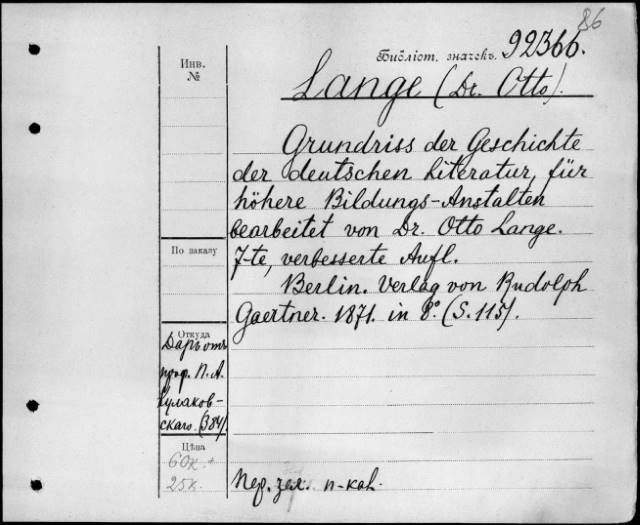 86
Инв. №
Библіот. значекъ. 92366.
Lange (Dr. Otto).
Grundriss der Geschichte
der deutschen Literatur, für
höhere Bildungs-Anstalten
bearbeitet von Dr. Otto Lange.
7-te, verbesserte Aufl.
Berlin. Verlag von Rudolph
Gaertner. 1871. in 8°. (S. 115).
По заказу
Откуда
Даръ отъ
проф. П. А.
Кулаков-
скаго. (384).
Цѣна
60к.
25к.
Пер. зел. п-кал.